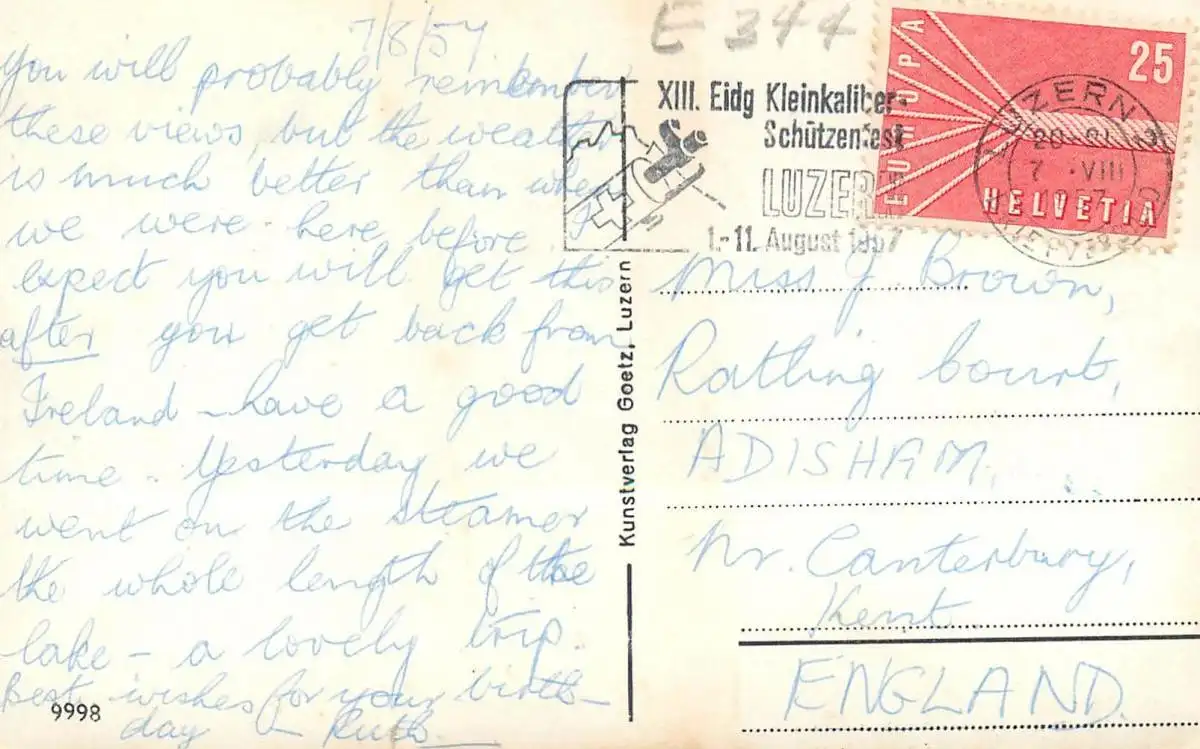 7/8/57
You will probably remember
these views, but the weather
is much better than when
we were here before. I
expect you will get this
after you get back from
Ireland – have a good
time. Yesterday we
went on the steamer
the whole length of the
lake – a lovely trip.
Best wishes for your birth-
day – Ruth.
9998
Kunstverlag Goetz, Luzern
E 344
XIII. Eidg Kleinkaliber-
Schützenfest
LUZERN
1.-11. August 1957
EUROPA
25
HELVETIA
LUZERN
7. VIII
1957
Miss J. Brown,
Ratling Court,
ADISHAM,
Nr. Canterbury,
Kent.
ENGLAND.